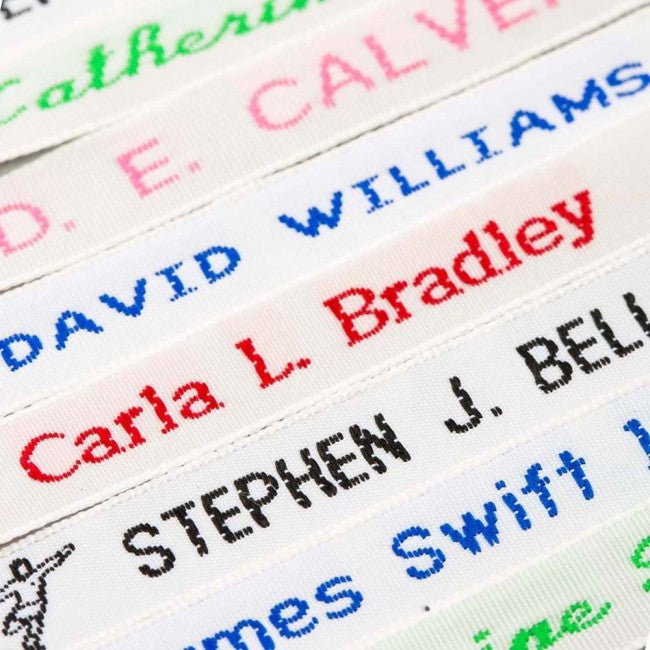 Catherin
D. E. CALVE
DAVID WILLIAMS
Carla L. Bradley
STEPHEN J. BELL
mes Swift
ine S